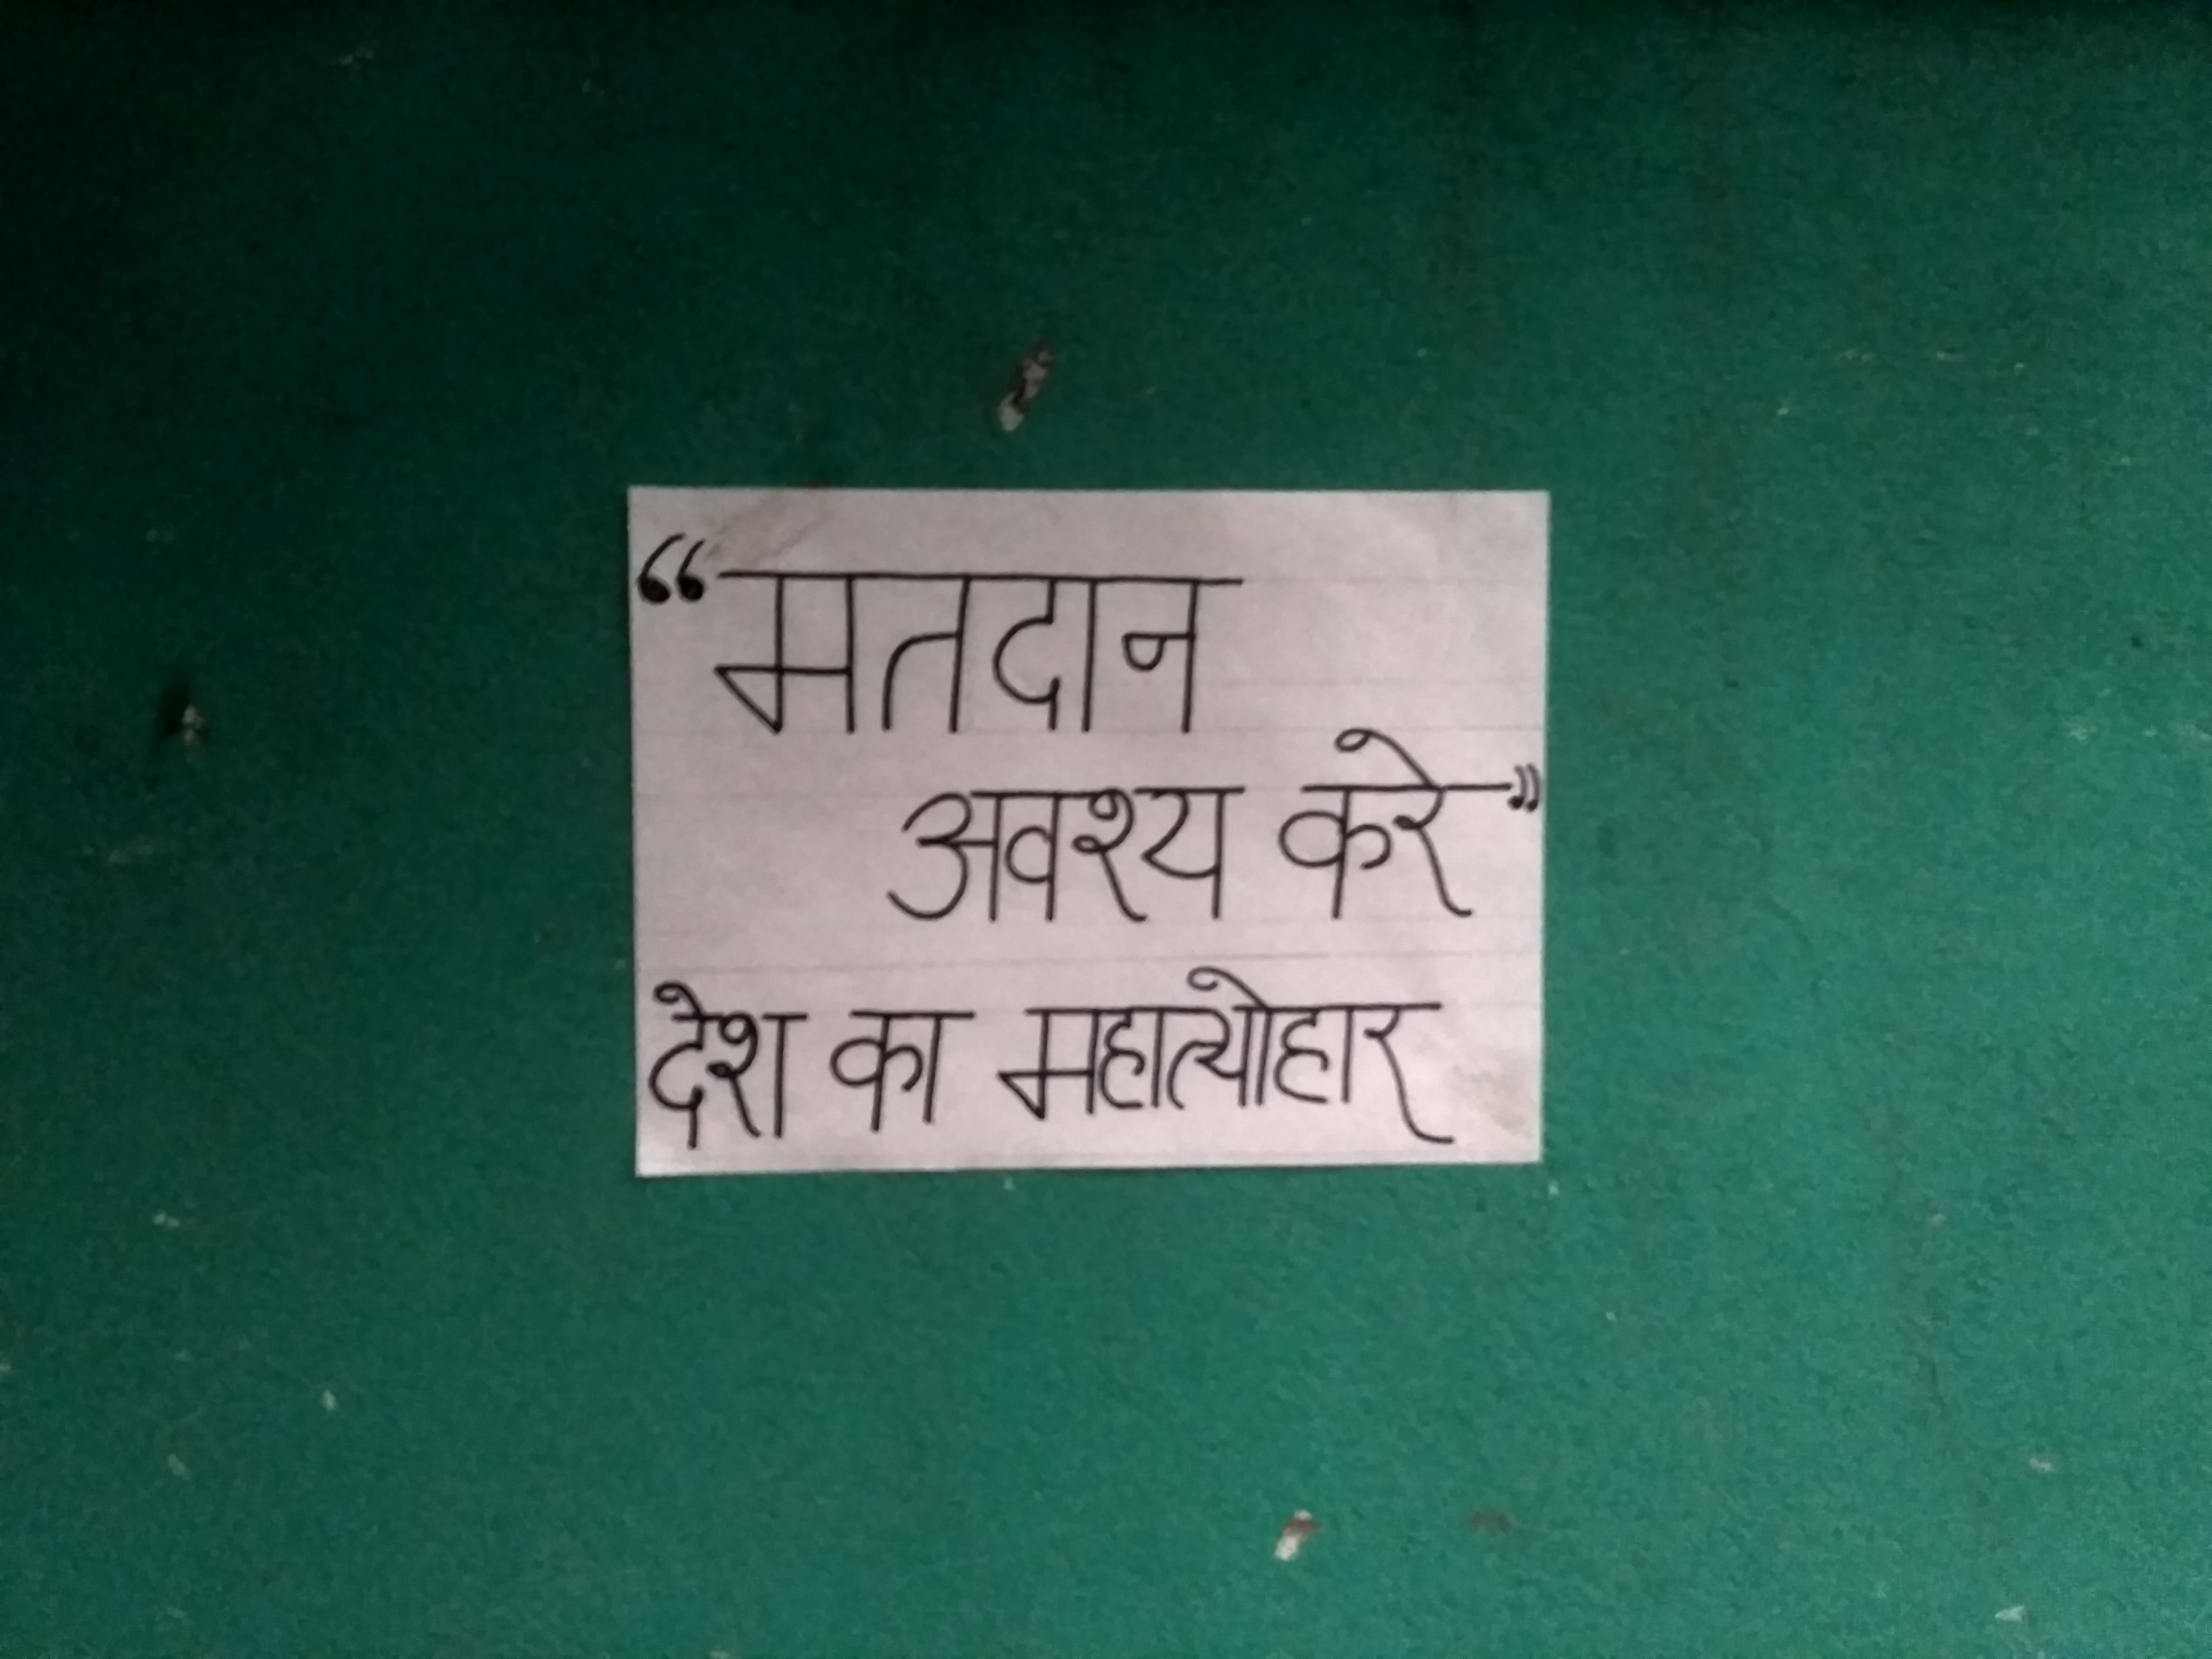 “मतदान
अवश्य करे”
देश का महात्योहार